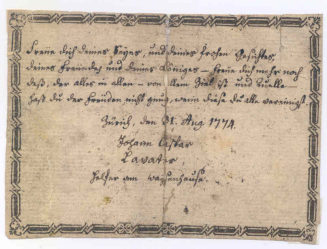 Freue dich deines Seyns, und deines hohen Gesichtes,
deines Freundes und deines Königes – freue dich mehr noch
deß, der alles in allen – von allem Ziel ist und Quelle –
hast du der Freuden nicht gnug, wenn diese du alle vereinigst
Zürich, den 31. Aug 1774.
Johann Caspar
Lavater,
Helfer am waysenhause.